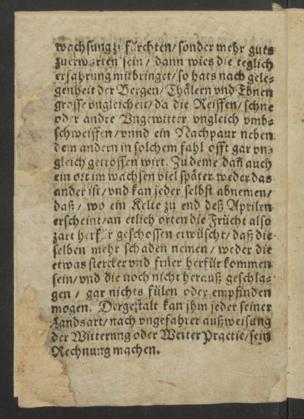 wachsung zu fürchten/ sonder mehr guts
zuerwarten sein/ dann wies die teglich
erfahrung mitbringet/ so hats nach gele-
genheit der Bergen/ Thälern vnd Ebnen
grosse vngleicheit/ da die Reiffen/ schne
oder andre Vngewitter vngleich vmb-
schweiffen/ vnnd ein Nachpaur neben
dem andern in solchem fahl offt gar vn-
gleich getroffen wirt. Zu deme dañ auch
ein ort im wachsen viel später weder das
ander ist/ vnd kan jeder selbst abnemen/
daß/ wo ein Kelte zu end deß Aprilen
erscheint/ an etlich orten die Frücht also
zart herfür geschossen erwüscht/ daß die-
selben mehr schaden nemen/ weder die
etwas stercker vnd früer herfür kommen
sein/ vnd die noch nicht herauß geschla-
gen/ gar nichts fülen oder empfinden
mögen. Dergestalt kan jhm jeder seiner
Landsart/ nach vngefahrer außweisung
der Witterung oder Wetter Practic/ sein
Rechnung machen.